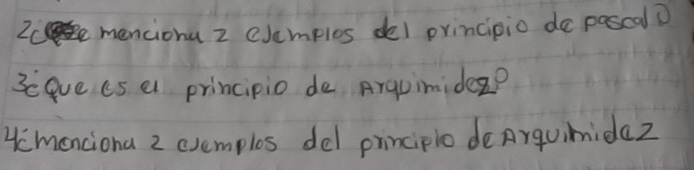 2¿ menciona 2 ejemplos del principio de pascal?
3¿Que es el principio de Arquimidez?
4¿menciona 2 ejemplos del principio de Arquimidez